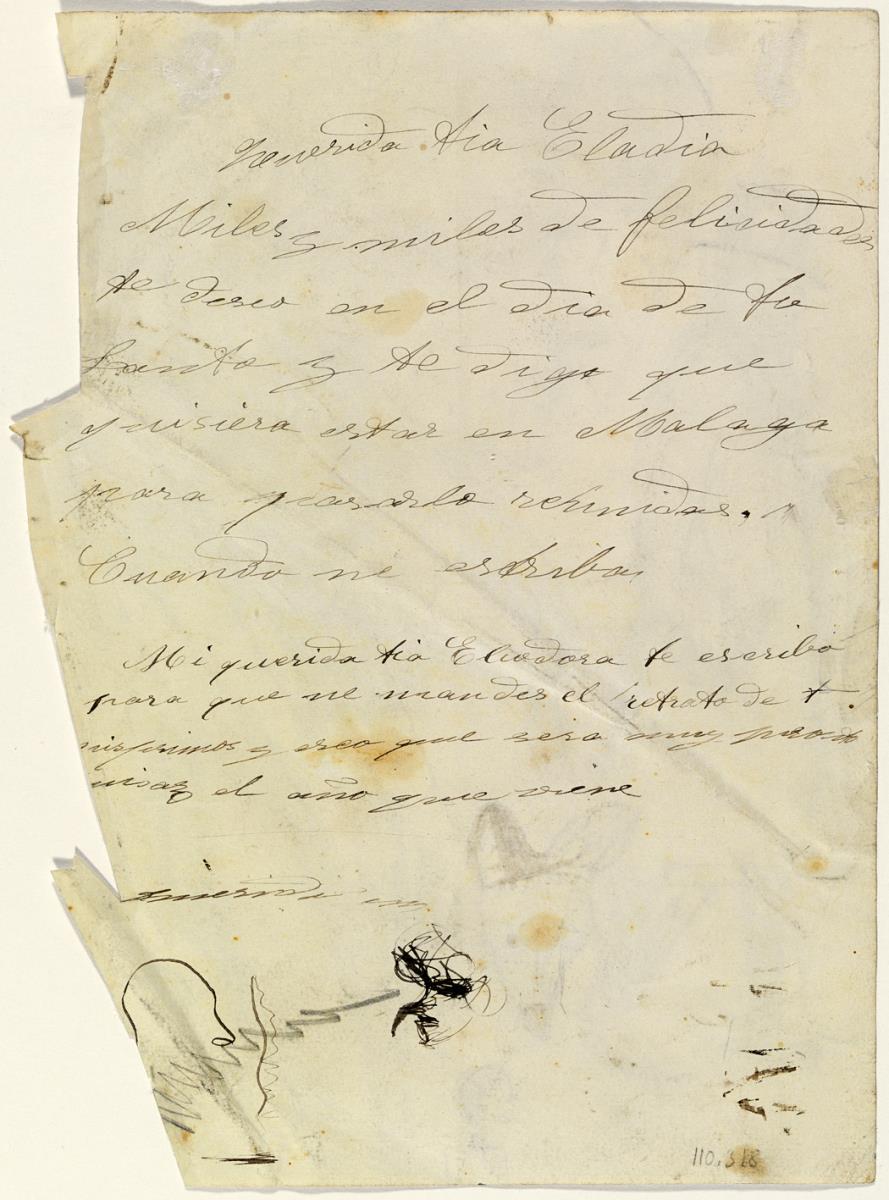 querida tia Eladia
Miles y miles de felicidades
te deseo en el dia de tu
Santo y te digo que
quisiera estar en Malaga
para pasarlo rehunidas.
Cuando me escriba
Mi querida tia Eliodora te escribo
para que me mandes el retrato de t
primos y creo que sera muy pronto
quisaz el año que viene
110.318